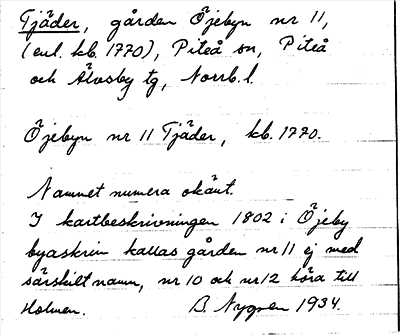 Tjäder, gården Öjebyn nr 11,
(enl. kb. 1770), Piteå sn, Piteå
och Älvsby tg, Norrb. l.
Öjebyn nr 11 Tjäder, kb. 1770.
Namnet numera okänt.
I kartbeskrivningen 1802 i Öjeby
byaskrin kallas gården nr 11 ej med
särskilt namn, nr 10 och nr 12 höra till
Holmen. B. Nygren 1934.